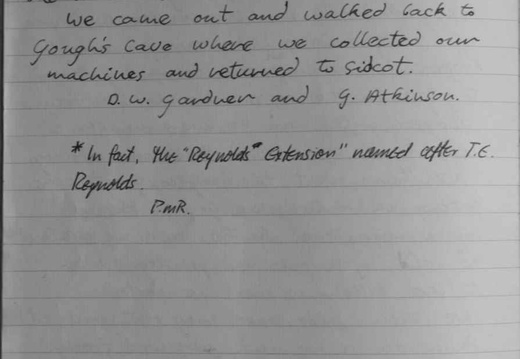 We came out and walked back to
Gough's Cave where we collected our
machines and returned to Sidcot.
D. W. Gardner and G. Atkinson.
* In fact, the "Reynolds" Extension" named after T.E.
Reynolds.
P.M.R.